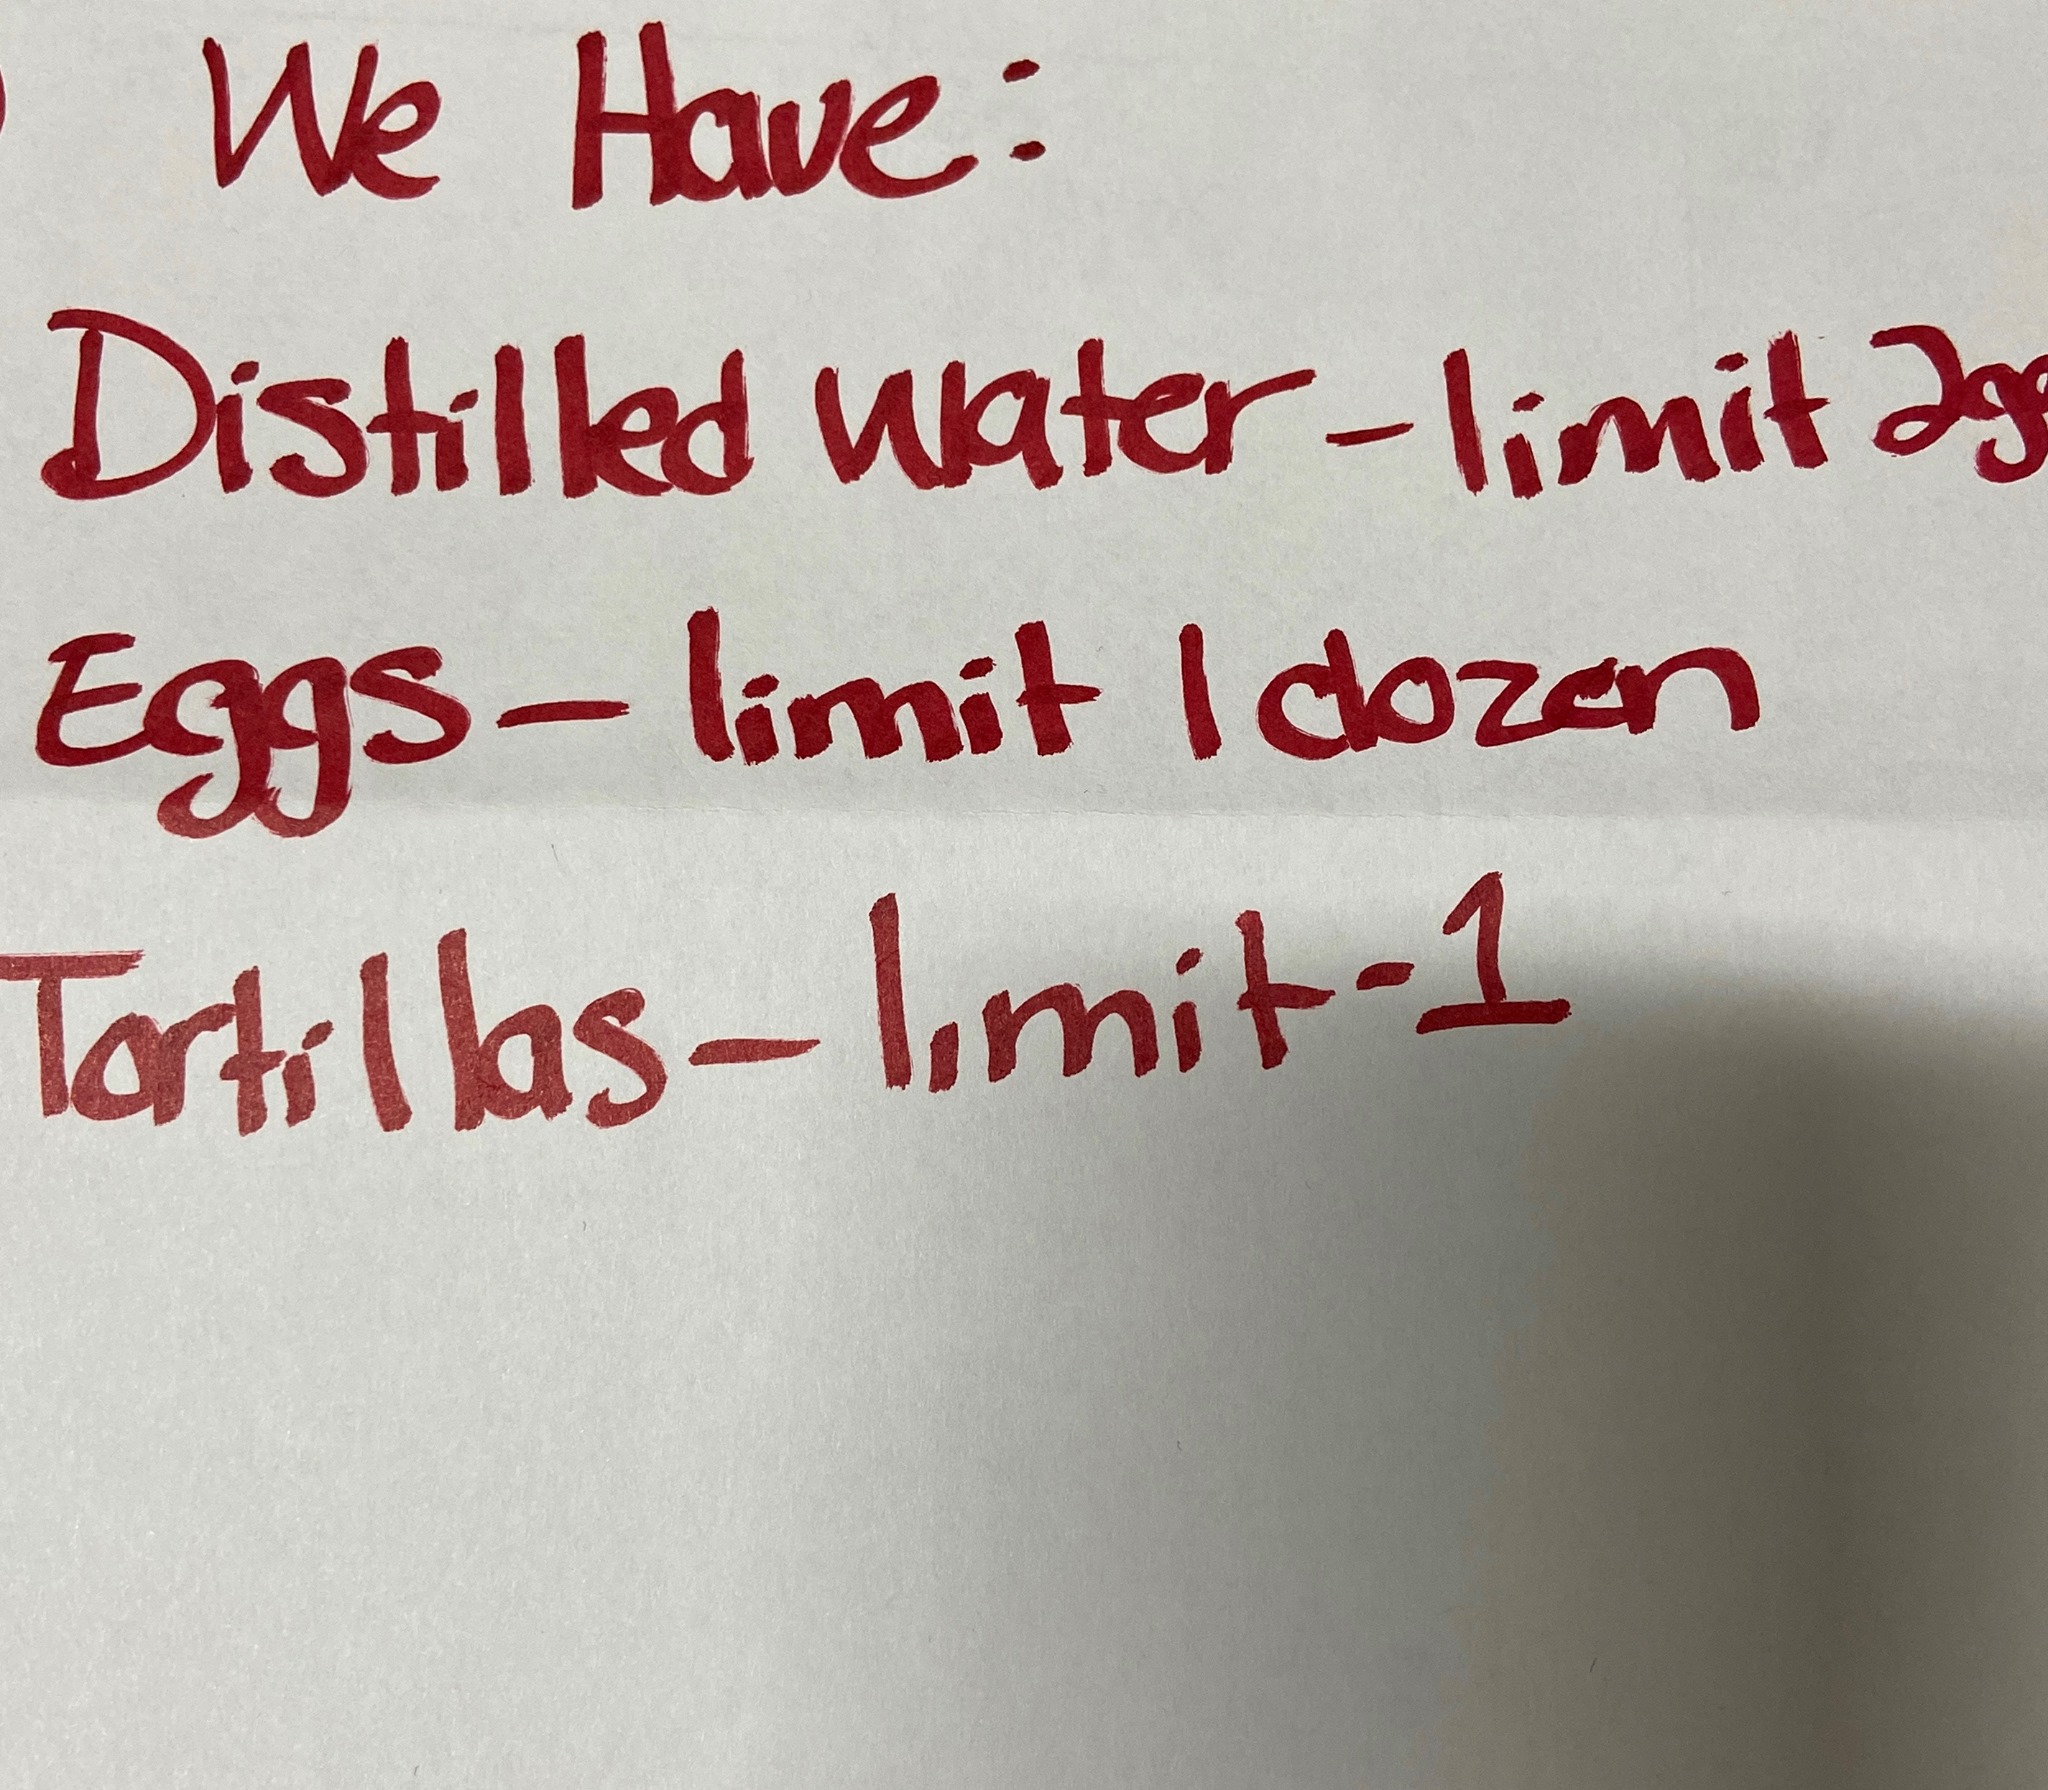 We Have:
Distilled water - limit 2
Eggs - limit 1 dozen
Tortillas - limit - 1